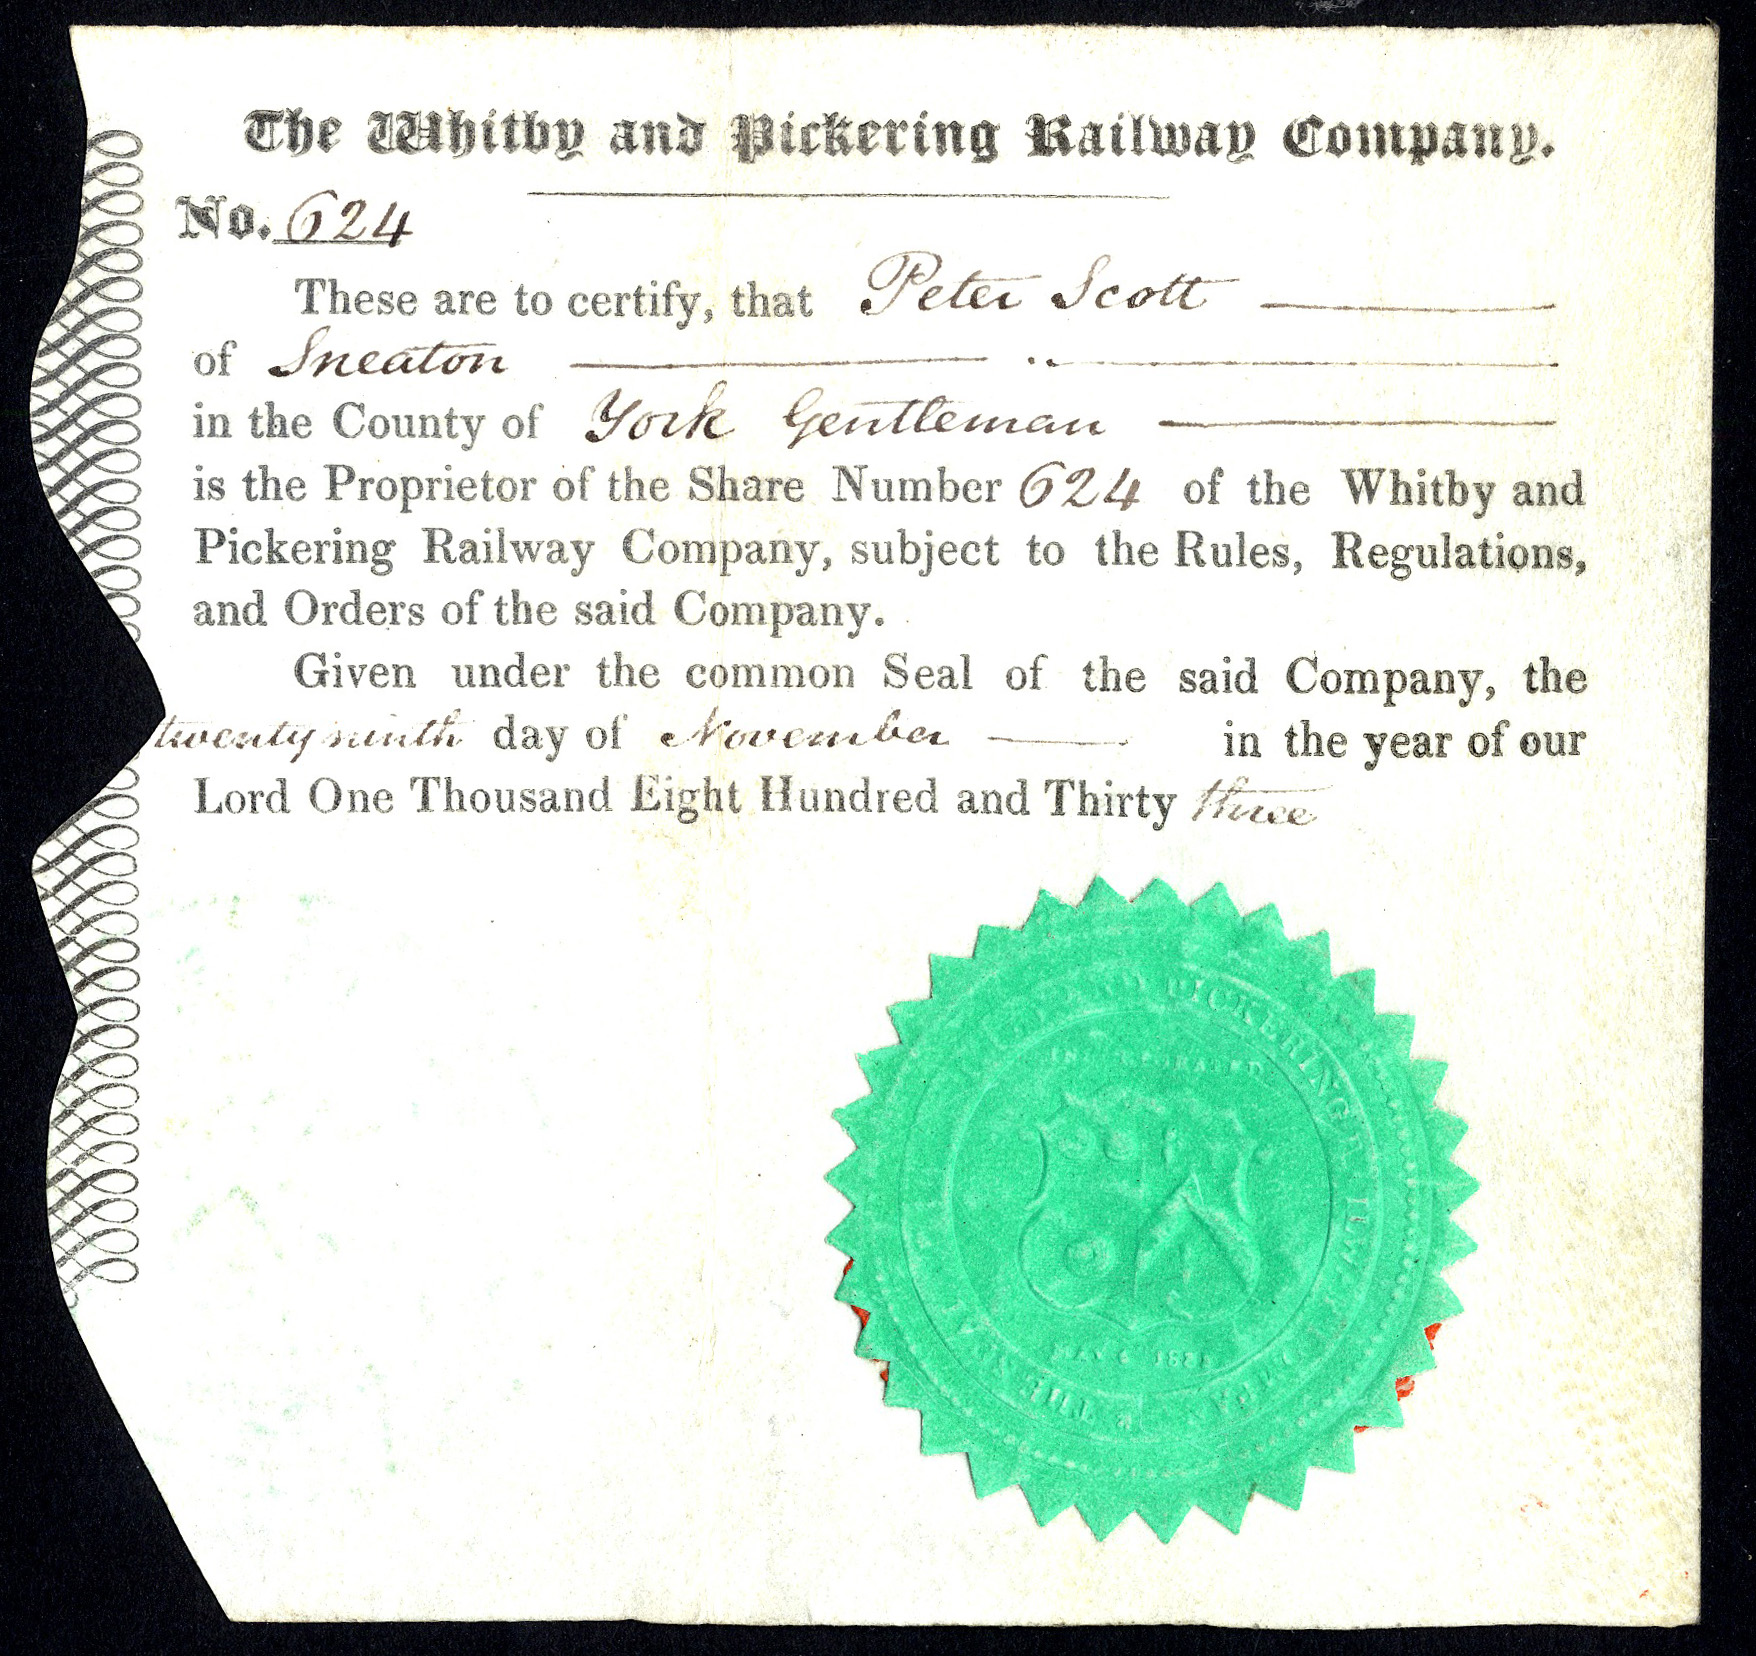 The Whitby and Pickering Railway Company.
No. 624
These are to certify, that Peter Scott
of Sneaton
in the County of York Gentleman
is the Proprietor of the Share Number 624 of the Whitby and
Pickering Railway Company, subject to the Rules, Regulations,
and Orders of the said Company.
Given under the common Seal of the said Company, the
twenty ninth day of November in the year of our
Lord One Thousand Eight Hundred and Thirty three
PICKERING
INCORPORATED
MAY 6 183
THE